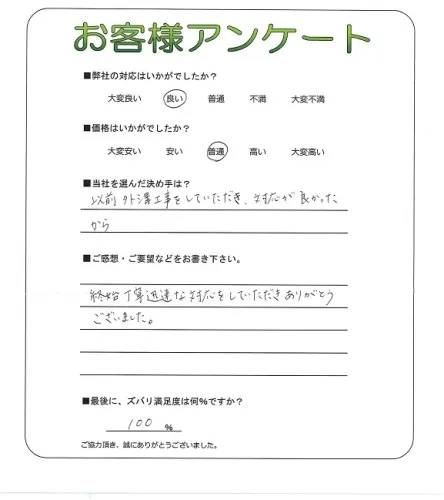 お客様アンケート
■弊社の対応はいかがでしたか？
大変良い 良い 普通 不満 大変不満
■価格はいかがでしたか？
大変安い 安い 普通 高い 大変高い
■当社を選んだ決め手は？
以前外溝工事をしていただき、対応が良かった
から
■ご感想・ご要望などをお書き下さい。
終始丁寧迅速な対応をしていただきありがとう
ございました。
■最後に、ズバリ満足度は何%ですか？
100 %
ご協力頂き、誠にありがとうございました。